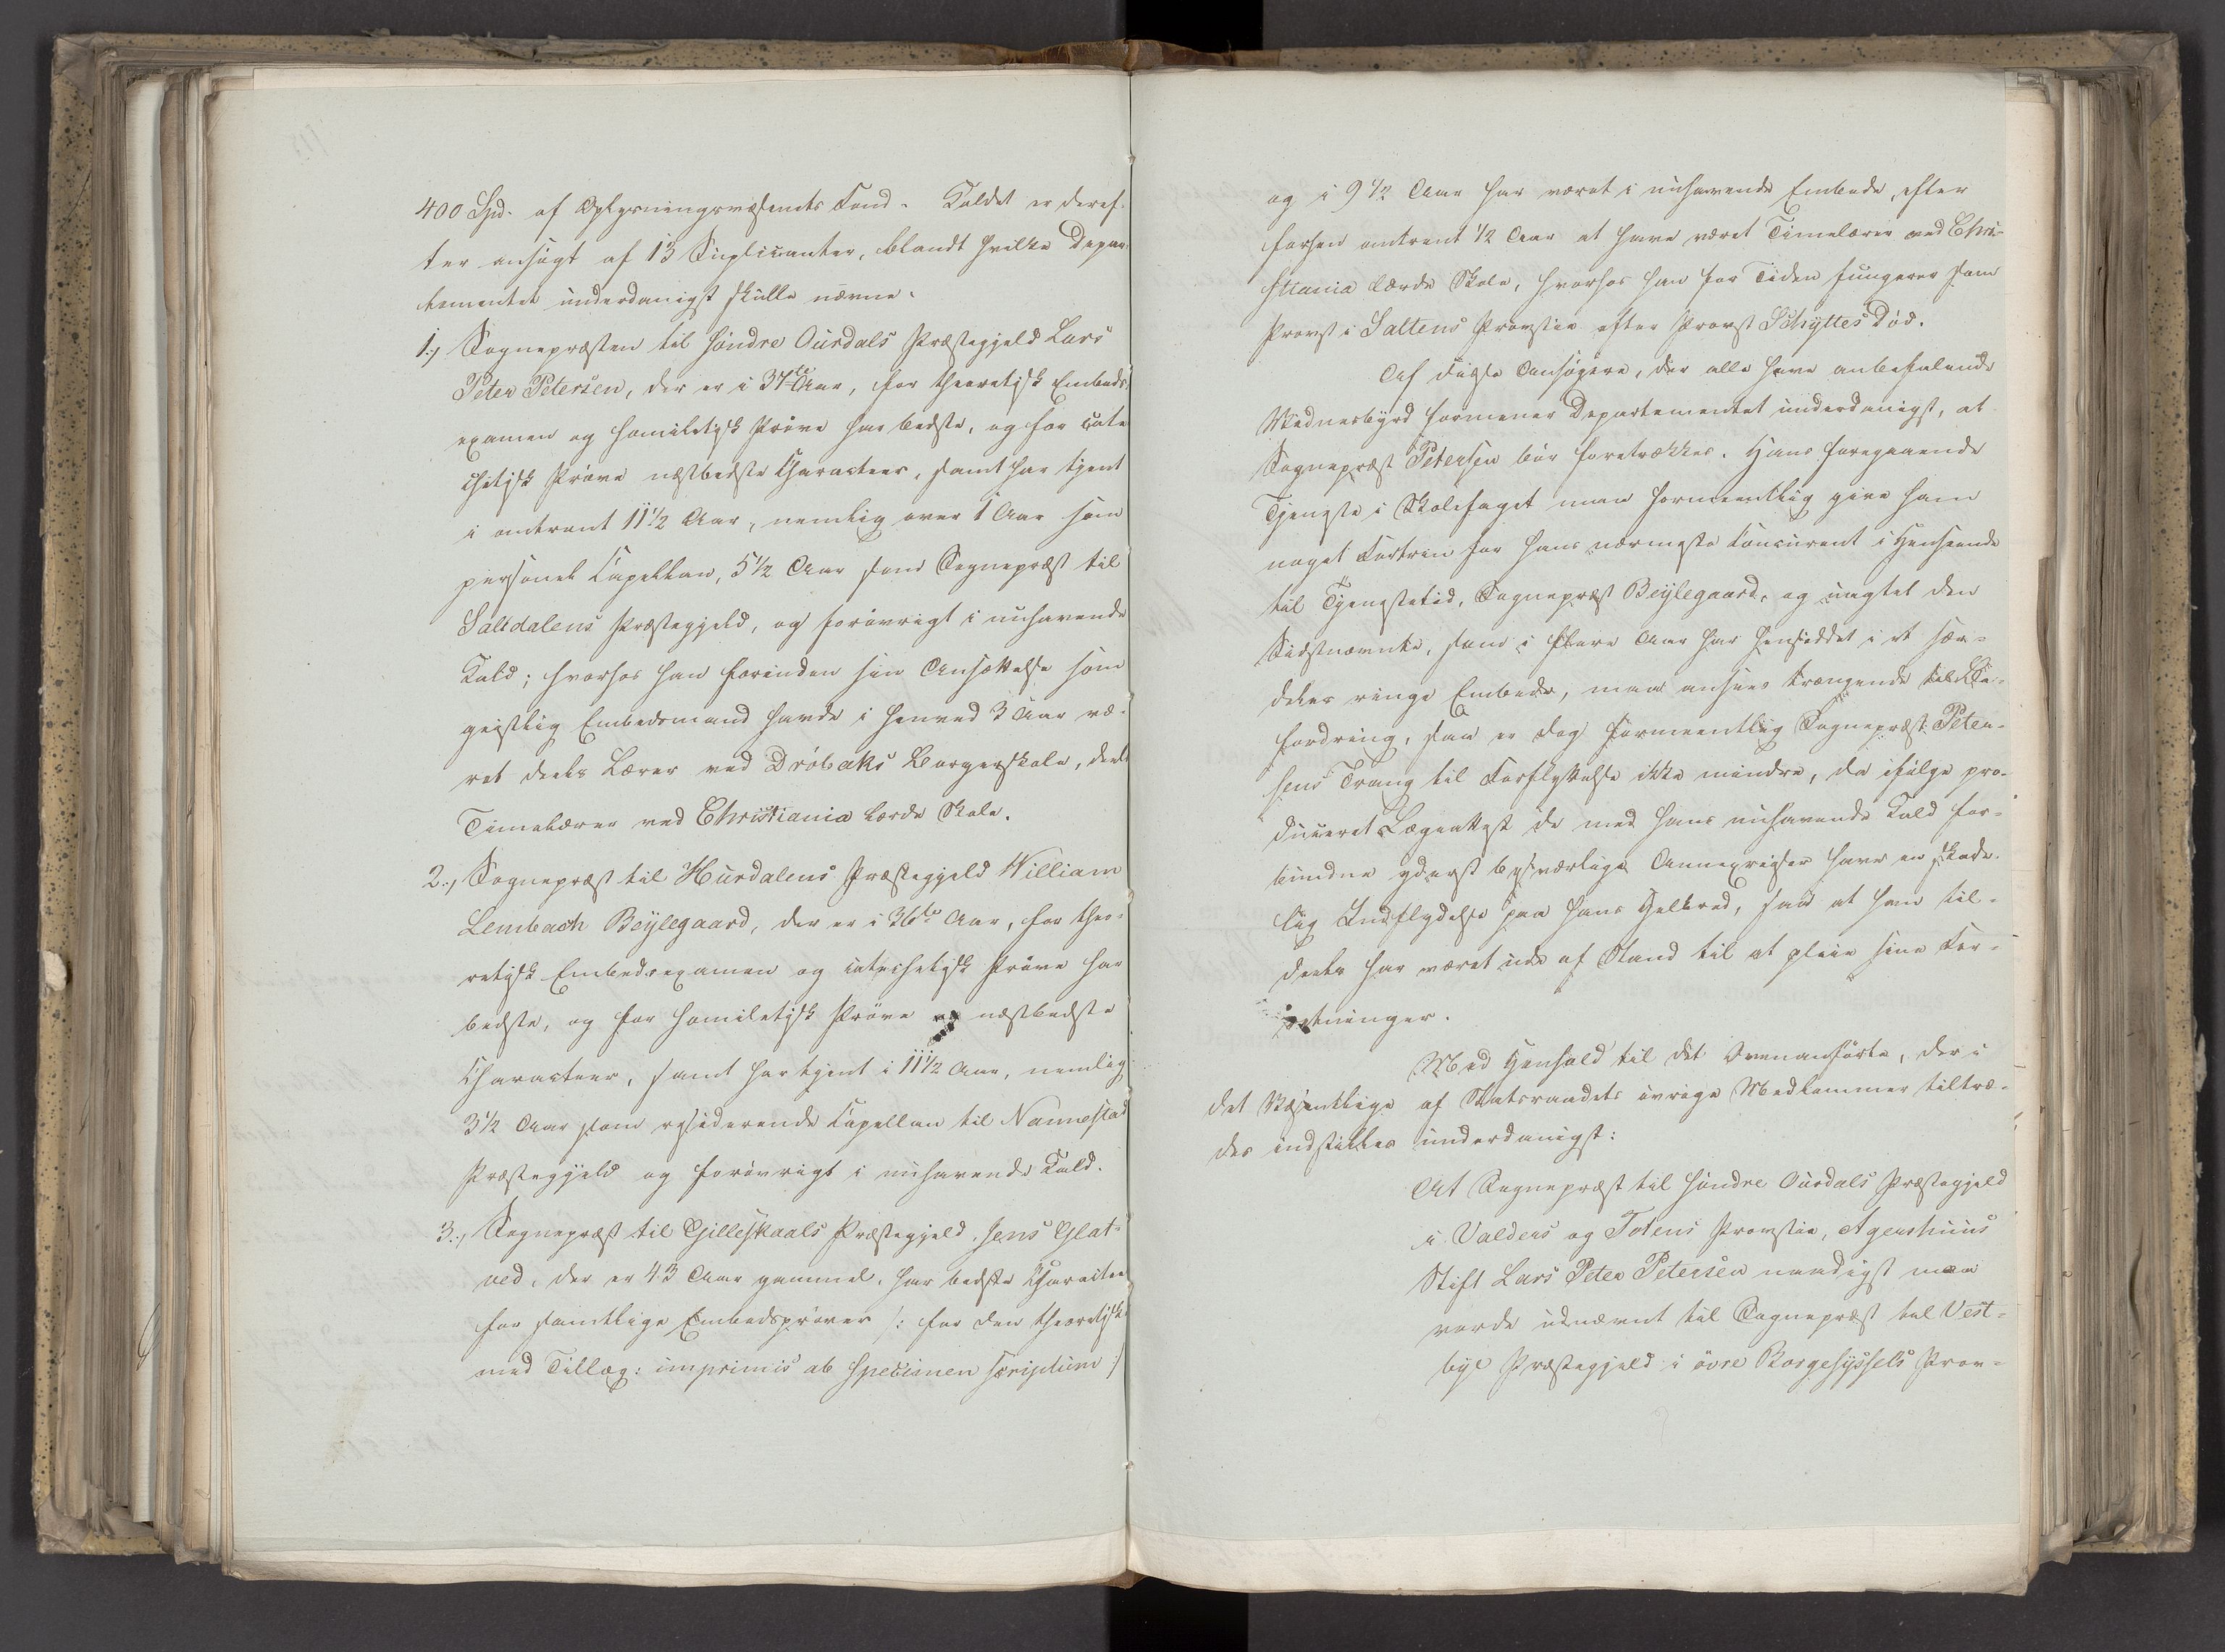 400 Spd. af Oplysningsvæsenets Fond. Kaldet er deref-
ter ansøgt af 13 Suplicanter, blandt hvilke Depar-
tementet underdanigst skulle nævne:
1.) Sognepræsten til søndre Ourdals Præstegjeld Lars
Peter Petersen, der er i 37te Aar, for theoretisk Embeds-
examen og homiletisk Prøve har bedste, og for cate-
chetisk Prøve næstbedste Characteer, samt har tjent
i omtrent 11 1/2 Aar, nemlig over 1 Aar som
personel Capellan, 5 1/2 Aar som Sognepræst til
Saltdalens Præstegjeld, og forøvrigt i nuhavende
Kald; hvorhos han forinden sin Ansættelse som
geistlig Embedsmand havde i henved 3 Aar væ-
ret deels Lærer ved Drøbaks Borgerskole, deels
Timelærer ved Christiania lærde Skole.
2.) Sognepræst til Hurdalens Præstegjeld William
Lembach Beylegaard, der er i 36te Aar, for theo-
retisk Embedsexamen og catechetisk Prøve har
bedste, og for homiletisk Prøve næstbedste
Characteer, samt har tjent i 11 1/2 Aar, nemlig
3 1/2 Aar som residerende Capellan til Nannestad
Præstegjeld og forøvrigt i nuhavende Kald.
3.) Sognepræst til Gilleskaals Præstegjeld, Jens Glat-
ved, der er 43 Aar gammel, har bedste Characteer
for samtlige Embedsprøver /: for den theoretiske
med Tillæg: imprimis ob specimen scriptum :/
og i 9 1/2 Aar har været i nuhavende Embede, efter
forhen omtrent 1/2 Aar at have været Timelærer ved Chri-
stiania lærde Skole, hvorhos han for Tiden fungerer som
Provst i Saltens Provstie efter Provst Schyttes Død.
Af disse Ansøgere, der alle have anbefalende
Vidnesbyrd formener Departementet underdanigst, at
Sognepræst Petersen bør foretrækkes. Hans foregaaende
Tjeneste i Skolefaget maa formeentlig give ham
noget Fortrin for hans nærmeste Concurent i Henseende
til Tjenestetid, Sognepræst Beylegaard, og uagtet den
Sidstnævnte, som i flere Aar har hensiddet i et sær-
deles ringe Embede, maa ansees trængende til Be-
fordring, saa er dog formeentlig Sognepræst Peter-
sens Trang til Forflyttelse ikke mindre, da ifølge pro-
duceret Lægeattest de med hans nuhavende Kald for-
bundne yderst besværlige Annexreiser have en skade-
lig Indflydelse paa hans Helbred, saa at han til-
deels har været ude af Stand til at pleie sine For-
retninger.
Med Henhold til det Ovenanførte, der i
det Væsentlige af Statsraadets øvrige Medlemmer tiltræ-
des indstilles underdanigst:
At Sognepræst til søndre Ourdals Præstegjeld
i Valders og Totens Provstie, Agershuus
Stift Lars Peter Petersen naadigst maa
vorde udnævnt til Sognepræst til Vest-
bye Præstegjeld i øvre Borgesyssels Prov-